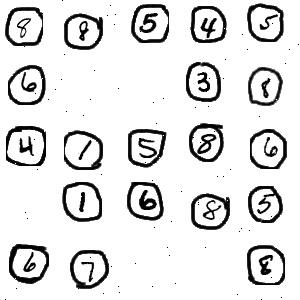 8 8 5 4 5
6 3 8
4 1 5 8 6
1 6 8 5
6 7 8